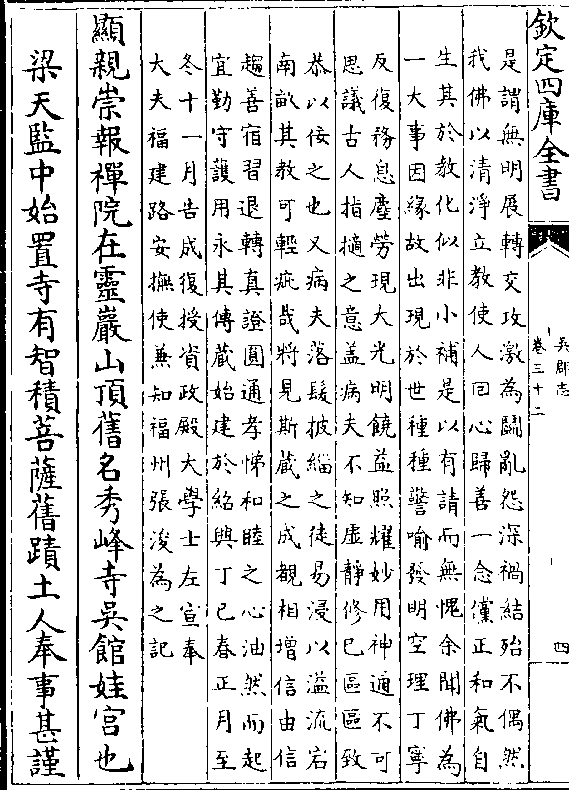 欽定四庫全書
吳郡志
卷三十二
四
是謂無明展轉交攻激為鬭亂怨深禍結殆不偶然
我佛以清淨立教使人回心歸善一念儻正和氣自
生其於教化似非小補是以有請而無愧余聞佛為
一大事因緣故出現於世種種譬喻發明空理丁寧
反復務息塵勞現大光明饒益照耀妙用神通不可
思議古人指擿之意盖病夫不知虛靜修已區區致
恭以佞之也又病夫落髮披緇之徒易浸以溢流宕
南畝其教可輕疵哉將見斯蔵之成觀相增信由信
趨善宿習退轉真證圓通孝悌和睦之心油然而起
宜勤守護用永其傳蔵始建於紹興丁巳春正月至
冬十一月告成復授資政殿大學士左宣奉
大夫福建路安撫使兼知福州張浚為之記
顯親崇報禪院在靈巖山頂舊名秀峰寺吳館娃宫也
梁天監中始置寺有智積菩薩舊蹟土人奉事甚謹